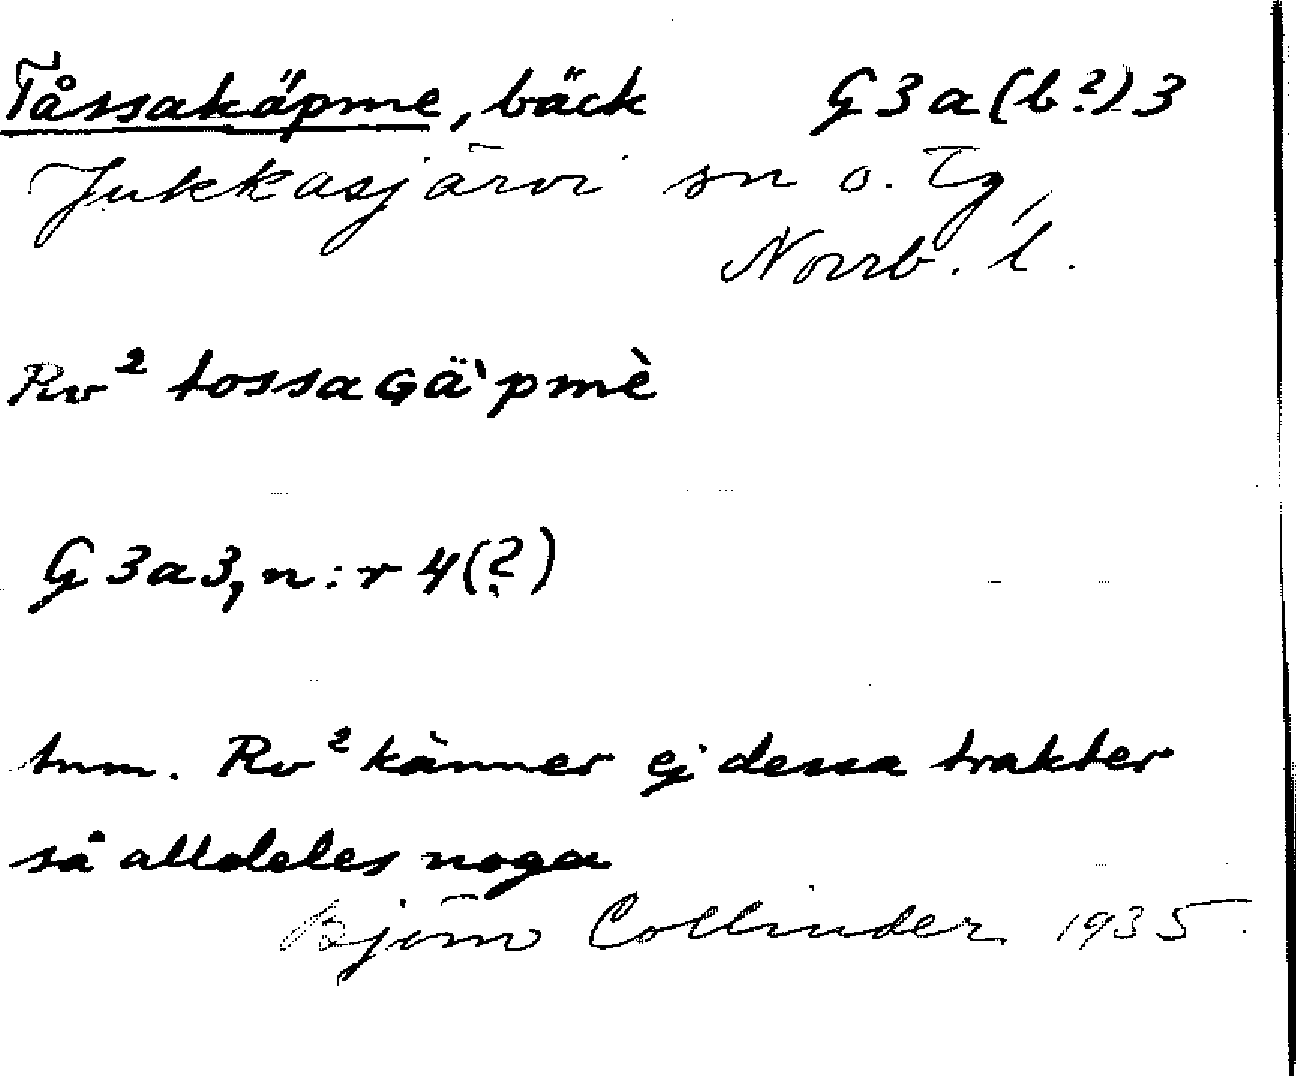 Tåssakäpme, bäck G3a(b?)3
Jukkasjärvi sn o. Tg,
Norrb. l.
Rv² tossaGä̀pmè
G3a3, n:r 4(?)
Anm. Rv² känner ej dessa trakter
så alldeles noga
Björn Collinder 1935